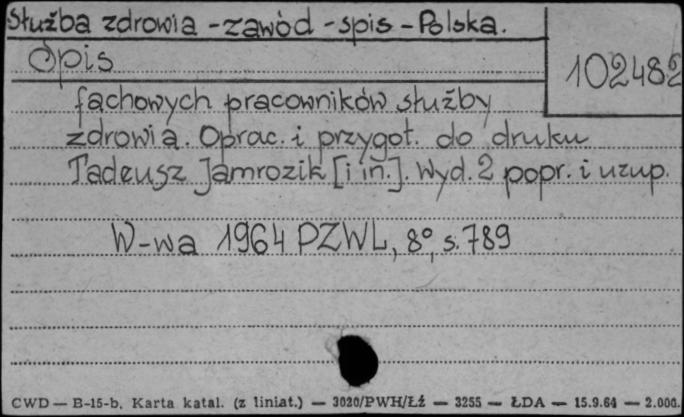 Służba zdrowia - zawód - spis - Polska.
102482
Spis
fachowych pracowników służby
zdrowia. Oprac. i przygot. do druku
Tadeusz Jamrozik [i in.]. Wyd. 2 popr. i uzup.
W-wa 1964 PZWL, 8°, s. 789
CWD — B-15-b. Karta katal. (z liniat.) — 3020/PWH/Łź — 3255 — ŁDA — 15.9.64 — 2.000.